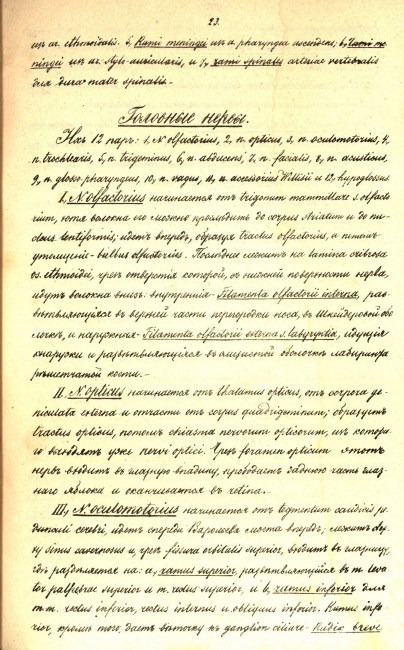 23.
из ar. ethmoidalis. 5, Rami meningei из a. pharyngea ascendens; 6, Rami me-
ningei из ar. stylo-auricularis, и 7, rami spinales arteriae vertebralis
для dura mater spinalis.
Головные нервы.
Ихъ 12 паръ: 1, N. olfactorius, 2, n. opticus, 3, n. oculomotorius, 4,
n. trochlearis, 5, n. trigeminus, 6, n. abducens, 7, n. facialis, 8, n. acusticus,
9, n. glosso-pharyngeus, 10, n. vagus, 11, n. accessorius Willisii и 12, hypoglossus.
I, N. olfactorius начинается отъ trigonum mammillare s. olfacto-
rium, хотя волокна его можно прослѣдить до corpus striatum и до nu-
cleus lentiformis; идетъ впередъ, образуя tractus olfactorius, а потомъ
утолщение - bulbus olfactorius. Послѣднее лежитъ на lamina cribrosa
os. ethmoidei, чрезъ отверстія которой, съ нижней поверхности нерва,
идутъ волокна внизъ: внутреннія - Filamenta olfactorii interna, раз-
вѣтвляющіяся въ верхней части перегородки носа, въ Шнейдеровой обо-
лочкѣ, и наружныя - Filamenta olfactorii externa s. labyrintha, идущія
кнаружи и развѣтвляющіяся въ слизистой оболочкѣ лабиринта
рѣшетчатой кости.
II. N. opticus начинается отъ thalamus opticus, отъ corpora ge-
niculata externa и отчасти отъ corpus quadrigeminum; образуетъ
tractus opticus, потомъ chiasma nervorum opticorum, изъ котора-
го выходятъ уже nervi optici. Чрезъ foramen opticum этотъ
нервъ входитъ въ глазную впадину, прободаетъ заднюю часть глаз-
наго яблока и оканчивается въ retina.
III, N. oculomotorius начинается отъ tegmentum caudicis pe-
dunculi cerebri, идетъ спереди Вароліева моста впередъ; лежитъ
sinus cavernosus и, чрезъ fissura orbitalis superior, входитъ въ глазницу,
гдѣ раздѣляется на: a, ramus superior, развѣтвляющійся въ m. leva-
tor palpebrae superior и m. rectus superior, и b, ramus inferior для
m.m. rectus inferior, rectus internus и obliquus inferior. Ramus infe-
rior, кромѣ того, даетъ вѣточку къ ganglion ciliare - Radix breve